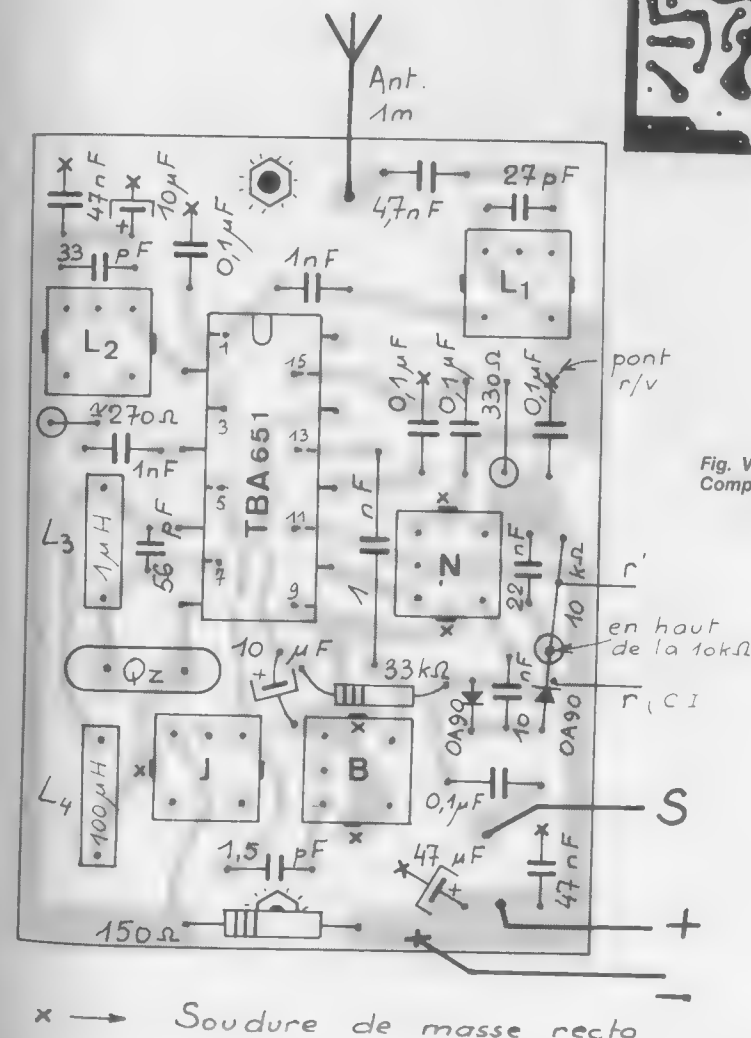 Ant.
1m
47nF
10µF
+
0,1µF
4,7nF
27pF
33 pF
1nF
L1
L2
1
15
3
13
5
11
7
9
TBA651
0,1µF
0,1µF
330Ω
0,1µF
pont
r/v
270Ω
1nF
Fig. V
Comp
L3
1µH
56 pF
1 nF
N
22 nF
10 kΩ
r'
en haut
de la 10kΩ
Qz
10 µF
+
33kΩ
OA90
10 nF
OA90
r, CI
L4
100µH
J
B
0,1µF
S
1,5 pF
47 µF
+
47nF
150Ω
+
−
x → Soudure de masse recto